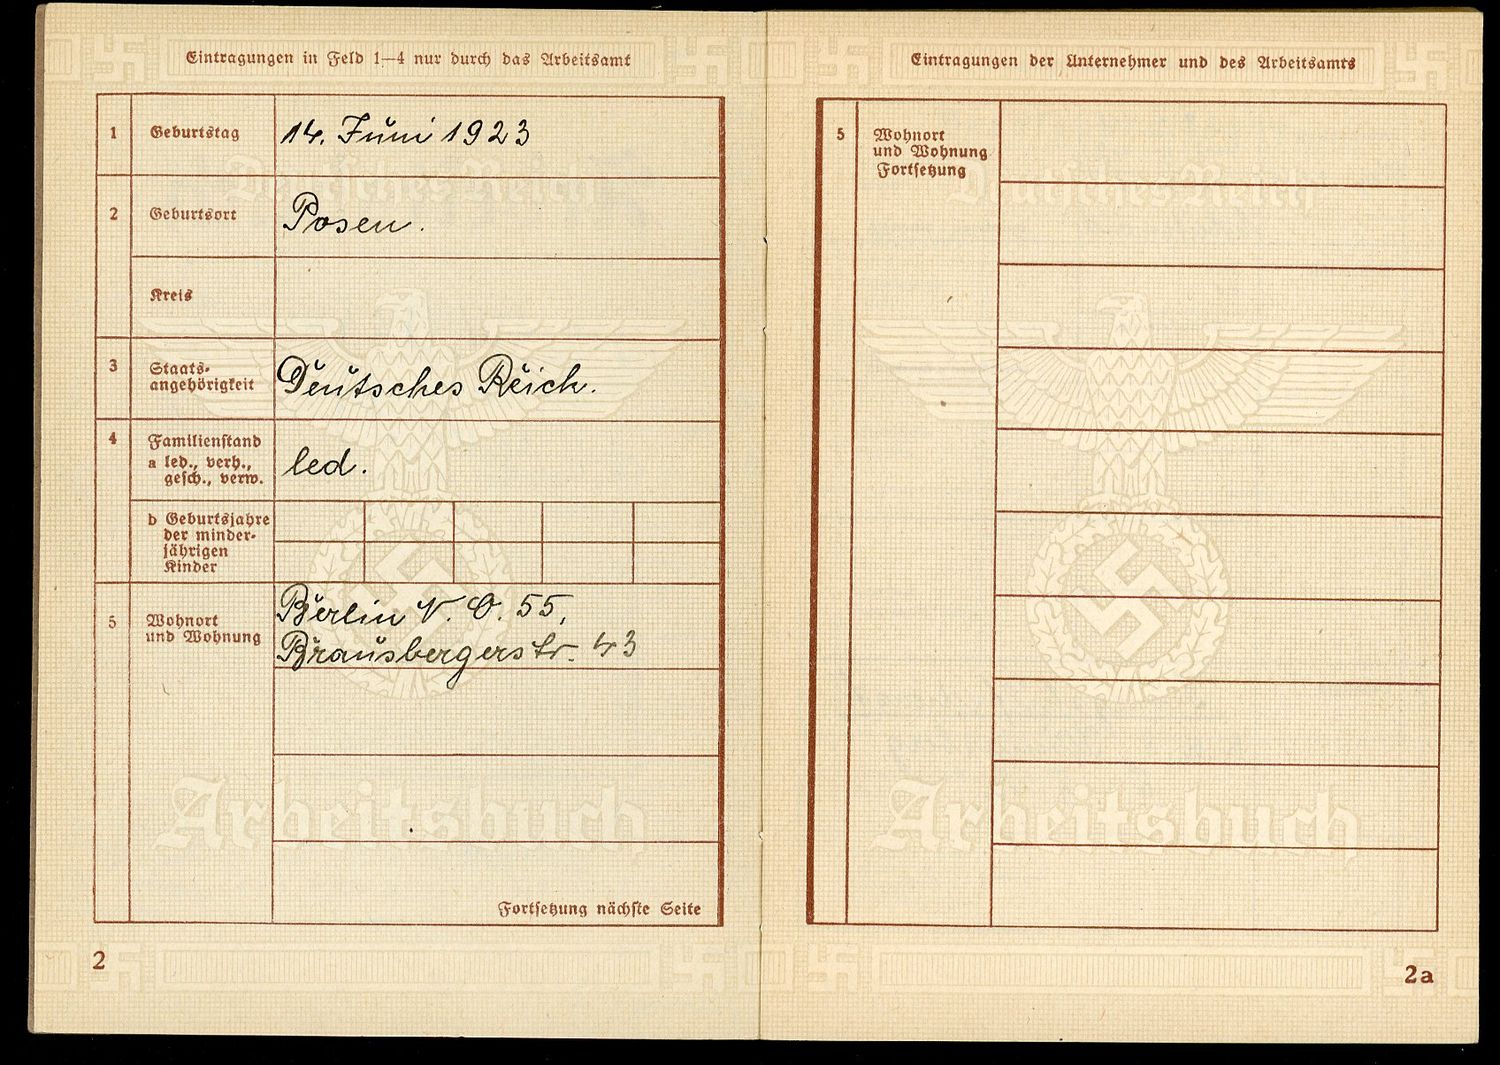 Eintragungen in Feld 1—4 nur durch das Arbeitsamt
1 Geburtstag 14. Juni 1923
2 Geburtsort Posen.
Kreis
3 Staats-
angehörigkeit Deutsches Reich.
4 Familienstand
a led., verh.,
gesch., verw. led.
b Geburtsjahre
der minder-
jährigen
Kinder
5 Wohnort
und Wohnung
Berlin N. O. 55,
Braunsbergerstr. 43
Fortsetzung nächste Seite
2
Deutsches Reich
Arbeitsbuch
Eintragungen der Unternehmer und des Arbeitsamts
5 Wohnort
und Wohnung
Fortsetzung
Deutsches Reich
Arbeitsbuch
2a